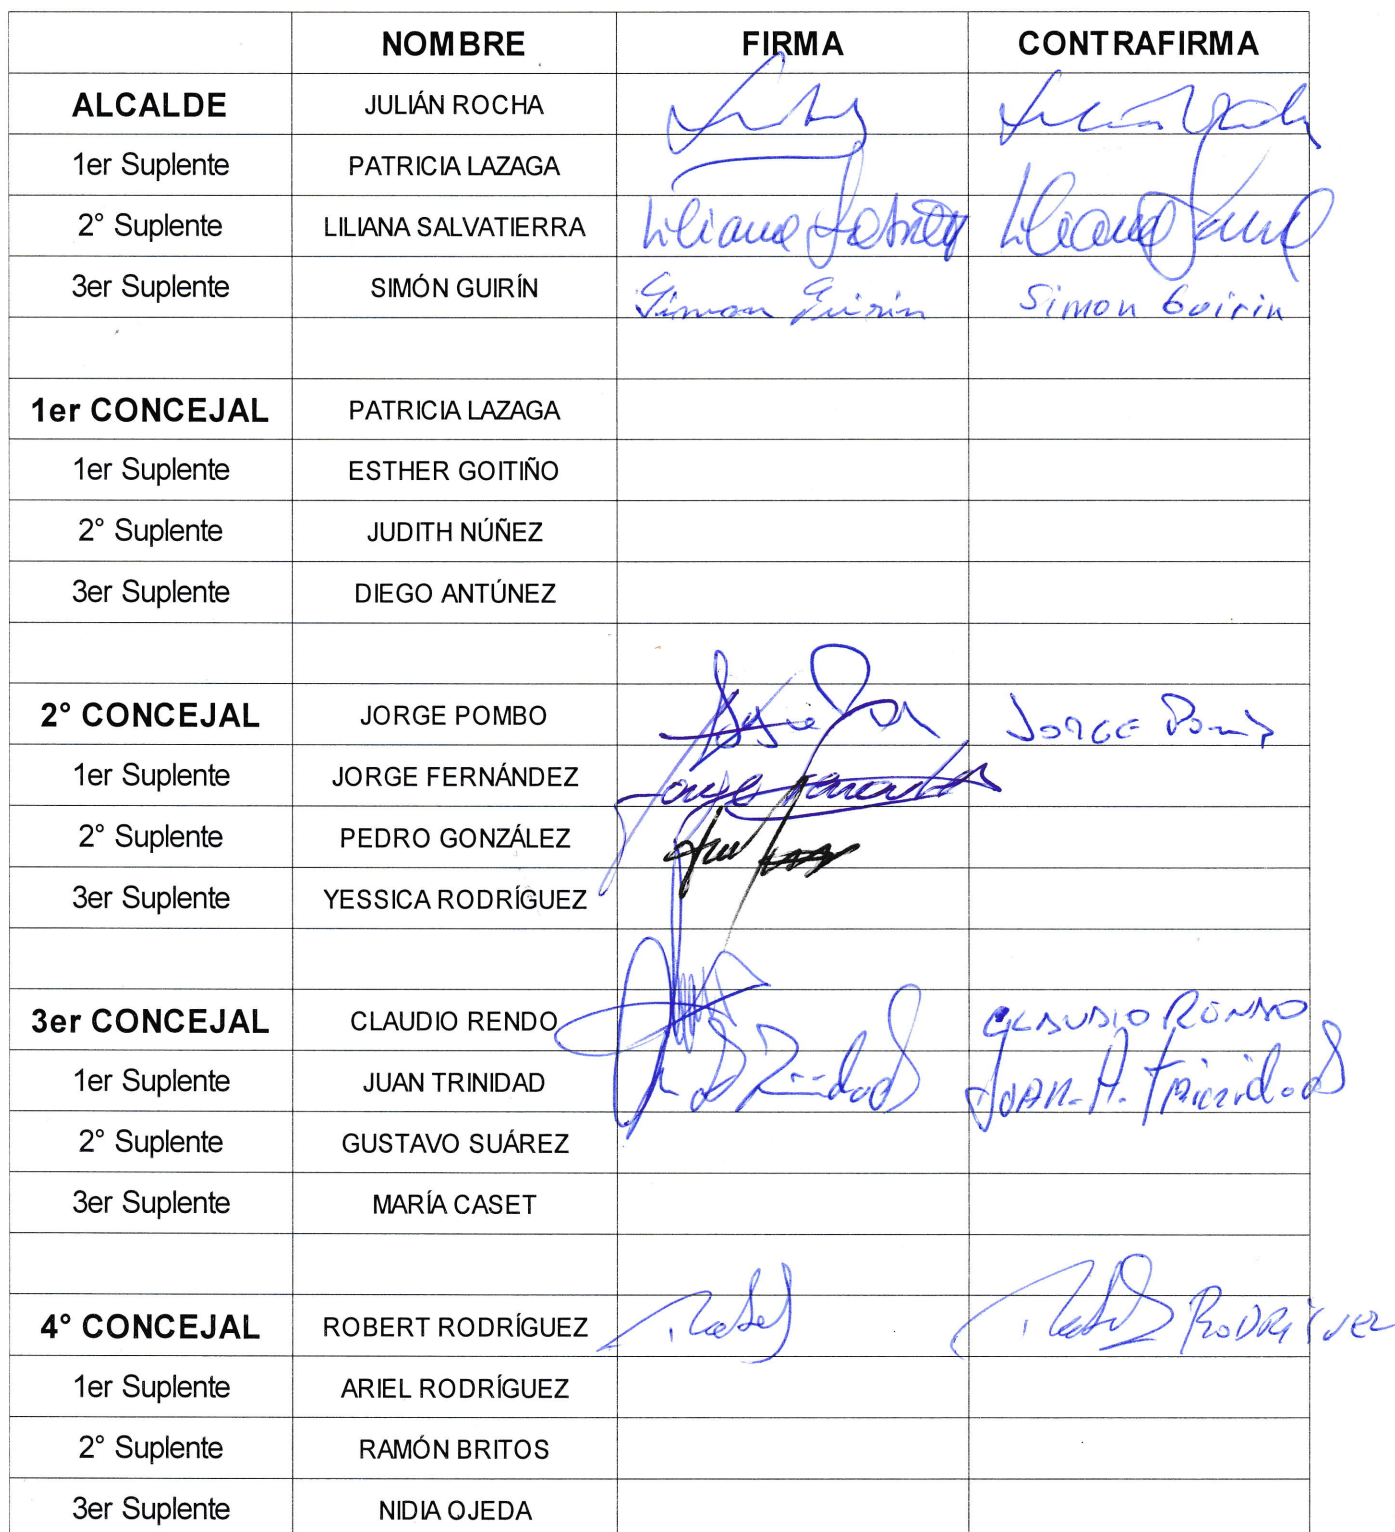 NOMBRE FIRMA CONTRAFIRMA
ALCALDE JULIÁN ROCHA
1er Suplente PATRICIA LAZAGA
2° Suplente LILIANA SALVATIERRA Liliana Liliana
3er Suplente SIMÓN GUIRÍN Simon Guirin Simon Guirin
1er CONCEJAL PATRICIA LAZAGA
1er Suplente ESTHER GOITIÑO
2° Suplente JUDITH NÚÑEZ
3er Suplente DIEGO ANTÚNEZ
2° CONCEJAL JORGE POMBO JORGE
1er Suplente JORGE FERNÁNDEZ
2° Suplente PEDRO GONZÁLEZ
3er Suplente YESSICA RODRÍGUEZ
3er CONCEJAL CLAUDIO RENDO CLAUDIO RENDO
1er Suplente JUAN TRINIDAD Trinidad JUAN. A. Trinidad
2° Suplente GUSTAVO SUÁREZ
3er Suplente MARÍA CASET
4° CONCEJAL ROBERT RODRÍGUEZ RODRÍGUEZ
1er Suplente ARIEL RODRÍGUEZ
2° Suplente RAMÓN BRITOS
3er Suplente NIDIA OJEDA